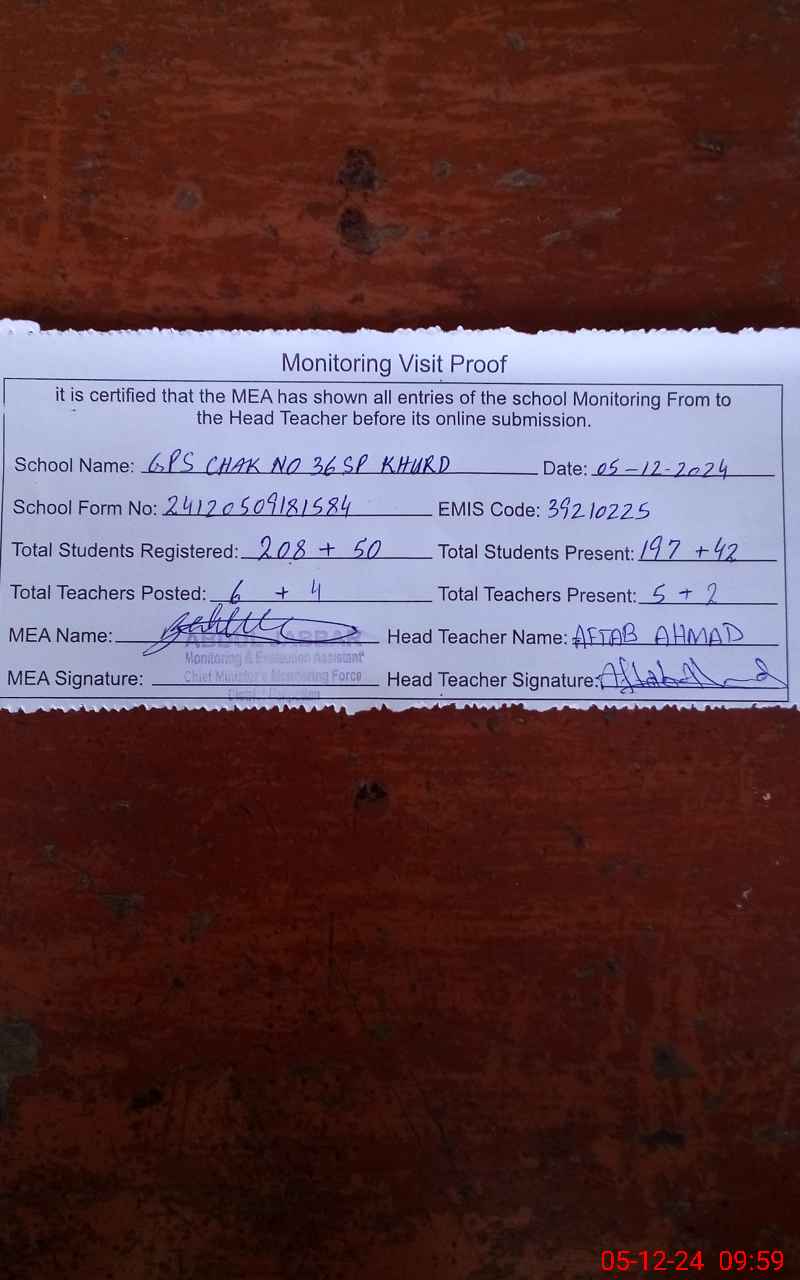 Monitoring Visit Proof
it is certified that the MEA has shown all entries of the school Monitoring From to
the Head Teacher before its online submission.
School Name: GPS CHAK NO 36 SP KHURD Date: 05-12-2024
School Form No: 24120509181584 EMIS Code: 39210225
Total Students Registered: 208 + 50 Total Students Present: 197 + 42
Total Teachers Posted: 6 + 4 Total Teachers Present: 5 + 2
MEA Name: ABDUL JABBAR Head Teacher Name: AFTAB AHMAD
Monitoring & Evaluation Assistant
MEA Signature: Chief Minister's Monitoring Force Head Teacher Signature: Aftab Ahmad
District
05-12-24 09:59